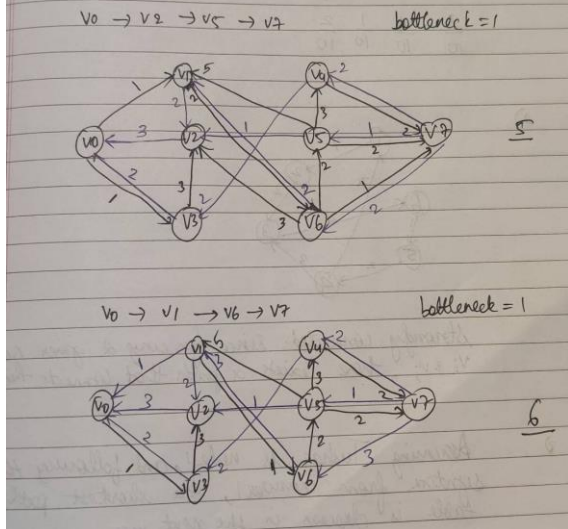 V0 → V2 → V5 → V7 bottleneck = 1
V1 5 V4 2
1 2 2 3
V0 3 V2 1 V5 1 2 V7 5
2 3 2 2 2 1
1 V3 2 3 V6 2
V0 → V1 → V6 → V7 bottleneck = 1
V1 6 V4 2
1 2 3 3
V0 3 V2 1 V5 1 2 V7 6
2 3 2 2 3
1 V3 2 1 V6